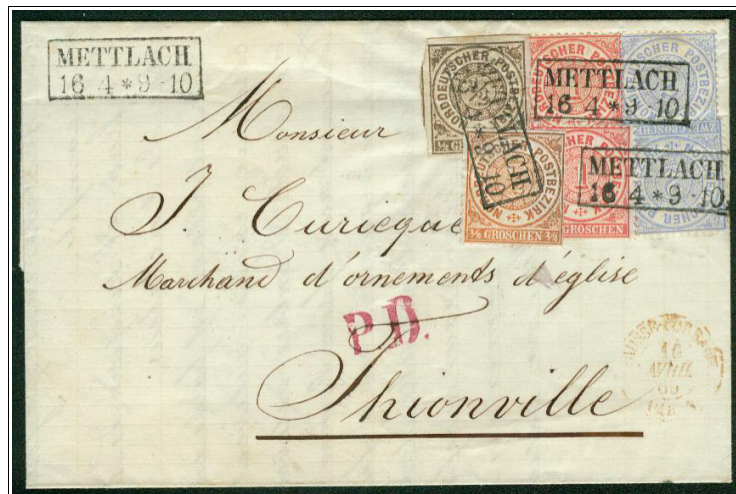 METTLACH
16 4 * 9-10
NORDDEUTSCHER POSTBEZIRK
1/4 GROSCHEN
METTLACH
16 4 * 9-10
METTLACH
16 4 * 9-10
NORDDEUTSCHER POSTBEZIRK
1/2 GROSCHEN 1/2
GROSCHEN
Monsieur
J. Curicque
Marchand d'ornements d'église
P.D.
Thionville
16
AVRIL